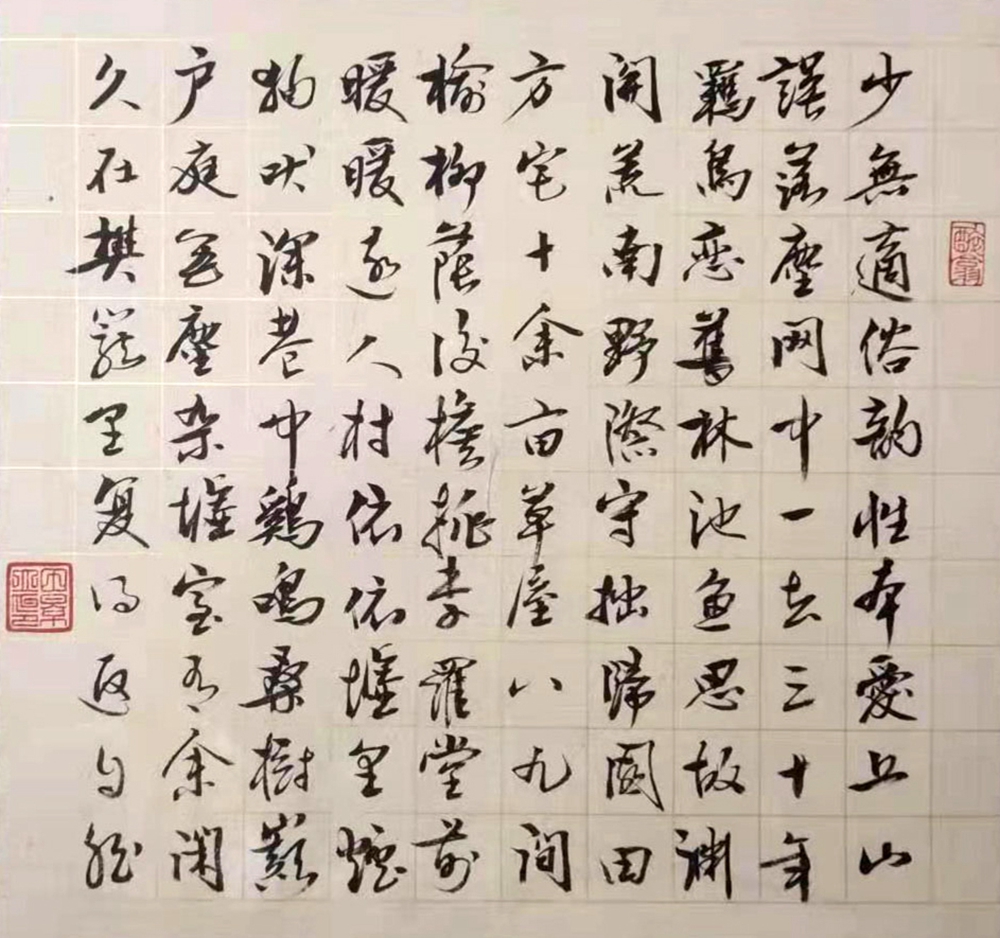 少無適俗韵性本愛丘山
誤落塵网中一去三十年
羈鳥恋舊林池魚思故渊
開荒南野際守拙歸園田
方宅十余亩草屋八九間
榆柳蔭後檐桃李羅堂前
暖暖遠人村依依墟里煙
狗吠深巷中鷄鳴桑樹巔
户庭無塵杂墟室有余閑
久在樊籠里复得返自然